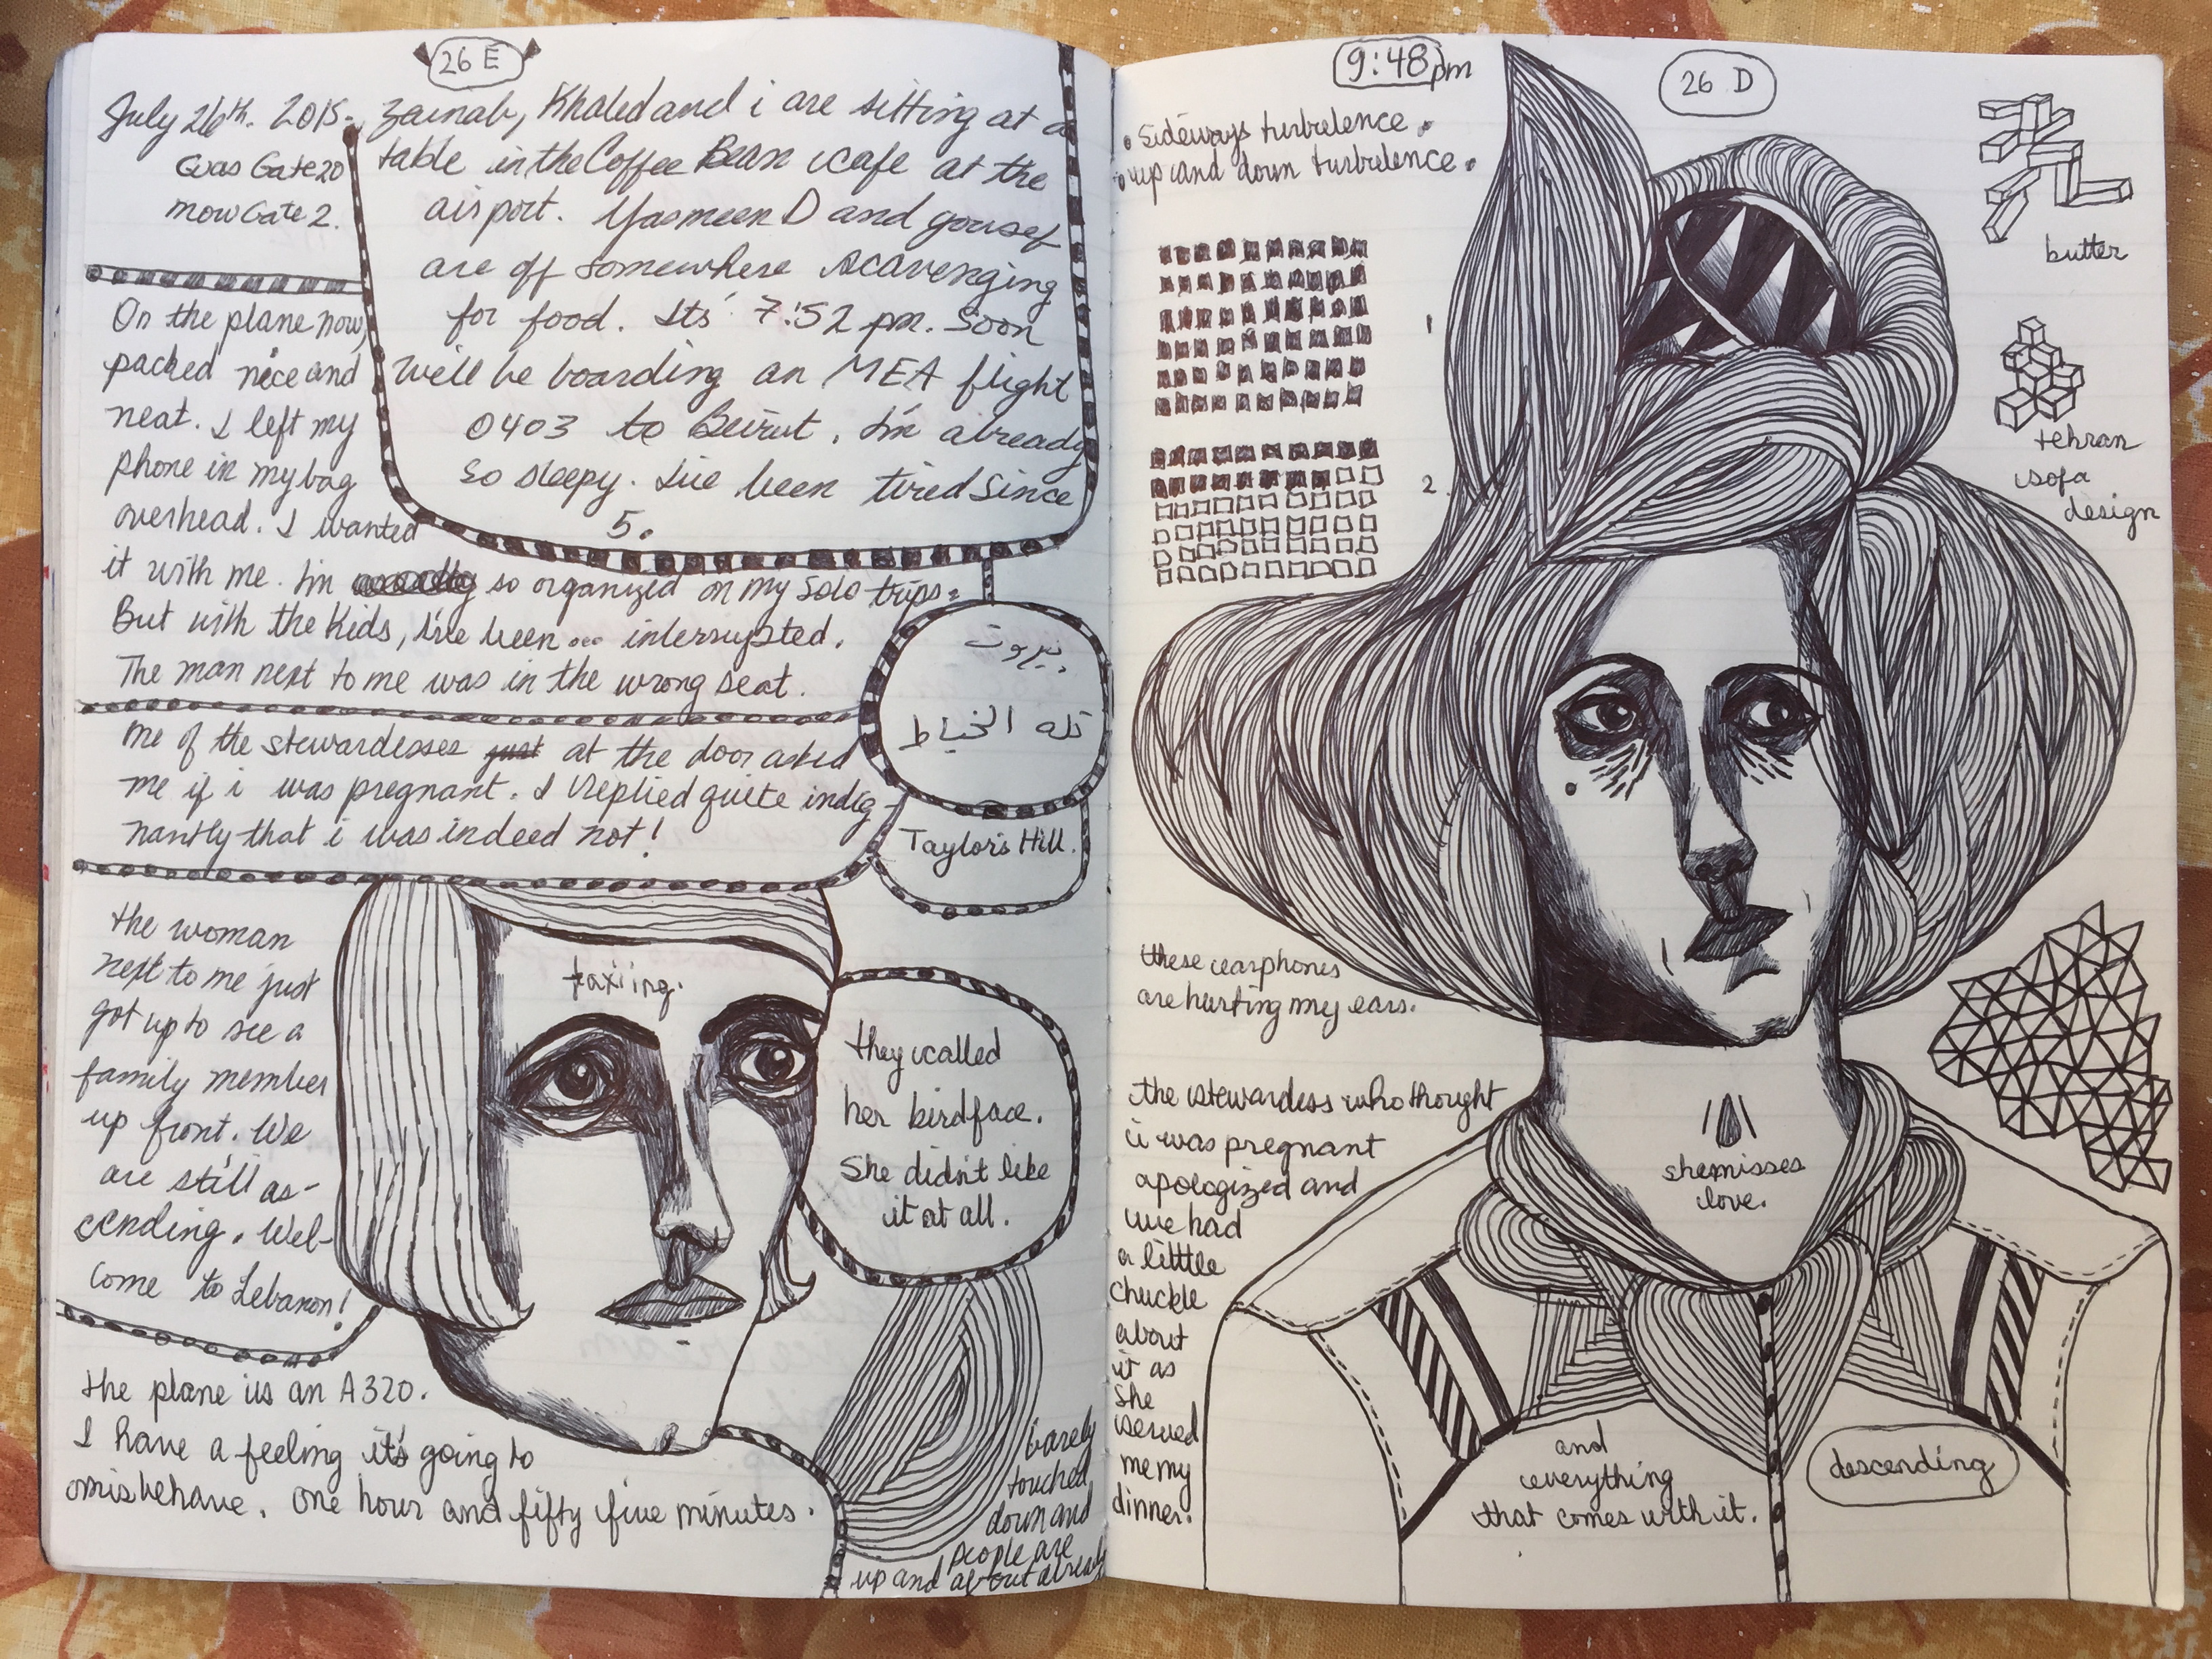 26 E
July 26th. 2015.
Was Gate 20
now Gate 2.
Zainab, Khaled and i are sitting at a
table in the Coffee Bean cafe at the
airport. Yasmeen D and yousef
are off somewhere scavenging
for food. Its 7:52 pm. Soon
we'll be boarding an MEA flight
0403 to Beirut. I'm already
so sleepy. I've been tired since
5.
On the plane now,
packed nice and
neat. I left my
phone in my bag
overhead. I wanted
it with me. I'm so organized on my solo trips.
But with the kids, I've been ... interrupted.
The man next to me was in the wrong seat.
بيروت
تلة الخياط
Taylor's Hill.
One of the stewardesses just at the door asked
me if i was pregnant. I replied quite indig-
nantly that i was indeed not!
the woman
next to me just
got up to see a
family member
up front. We
are still as-
cending. Wel-
come to Lebanon!
taxiing.
they called
her birdface.
She didn't like
it at all.
the plane is an A320.
I have a feeling it's going to
misbehave. One hour and fifty five minutes.
barely
touched
down and
people are
up and about already
9:48pm
26 D
• Sideways turbulence.
• up and down turbulence.
1
2.
butter
tehran
sofa
design
these earphones
are hurting my ears.
the stewardess who thought
i was pregnant
apologized and
we had
a little
chuckle
about
it as
she
served
me my
dinner!
she misses
love.
and
everything
that comes with it.
descending